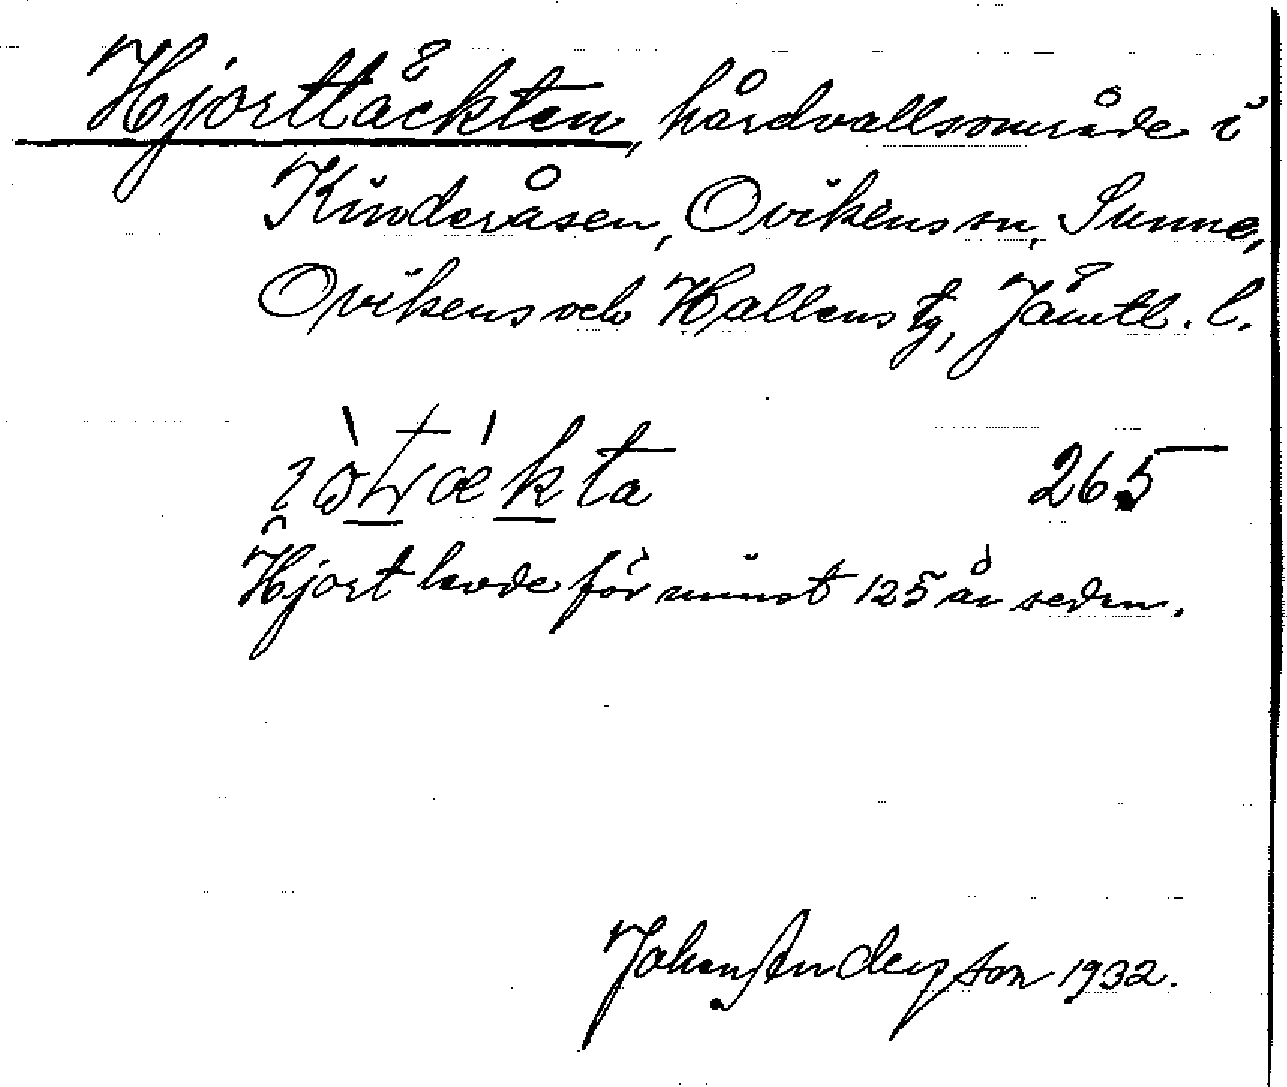 Hjorttäckten, hårdvallsområde i
Kinderåsen, Ovikens sn, Sunne,
Ovikens och Hallens tg, Jämtl. l.
265
Hjort levde för minst 125 år sedan.
Johan Anderson 1932.